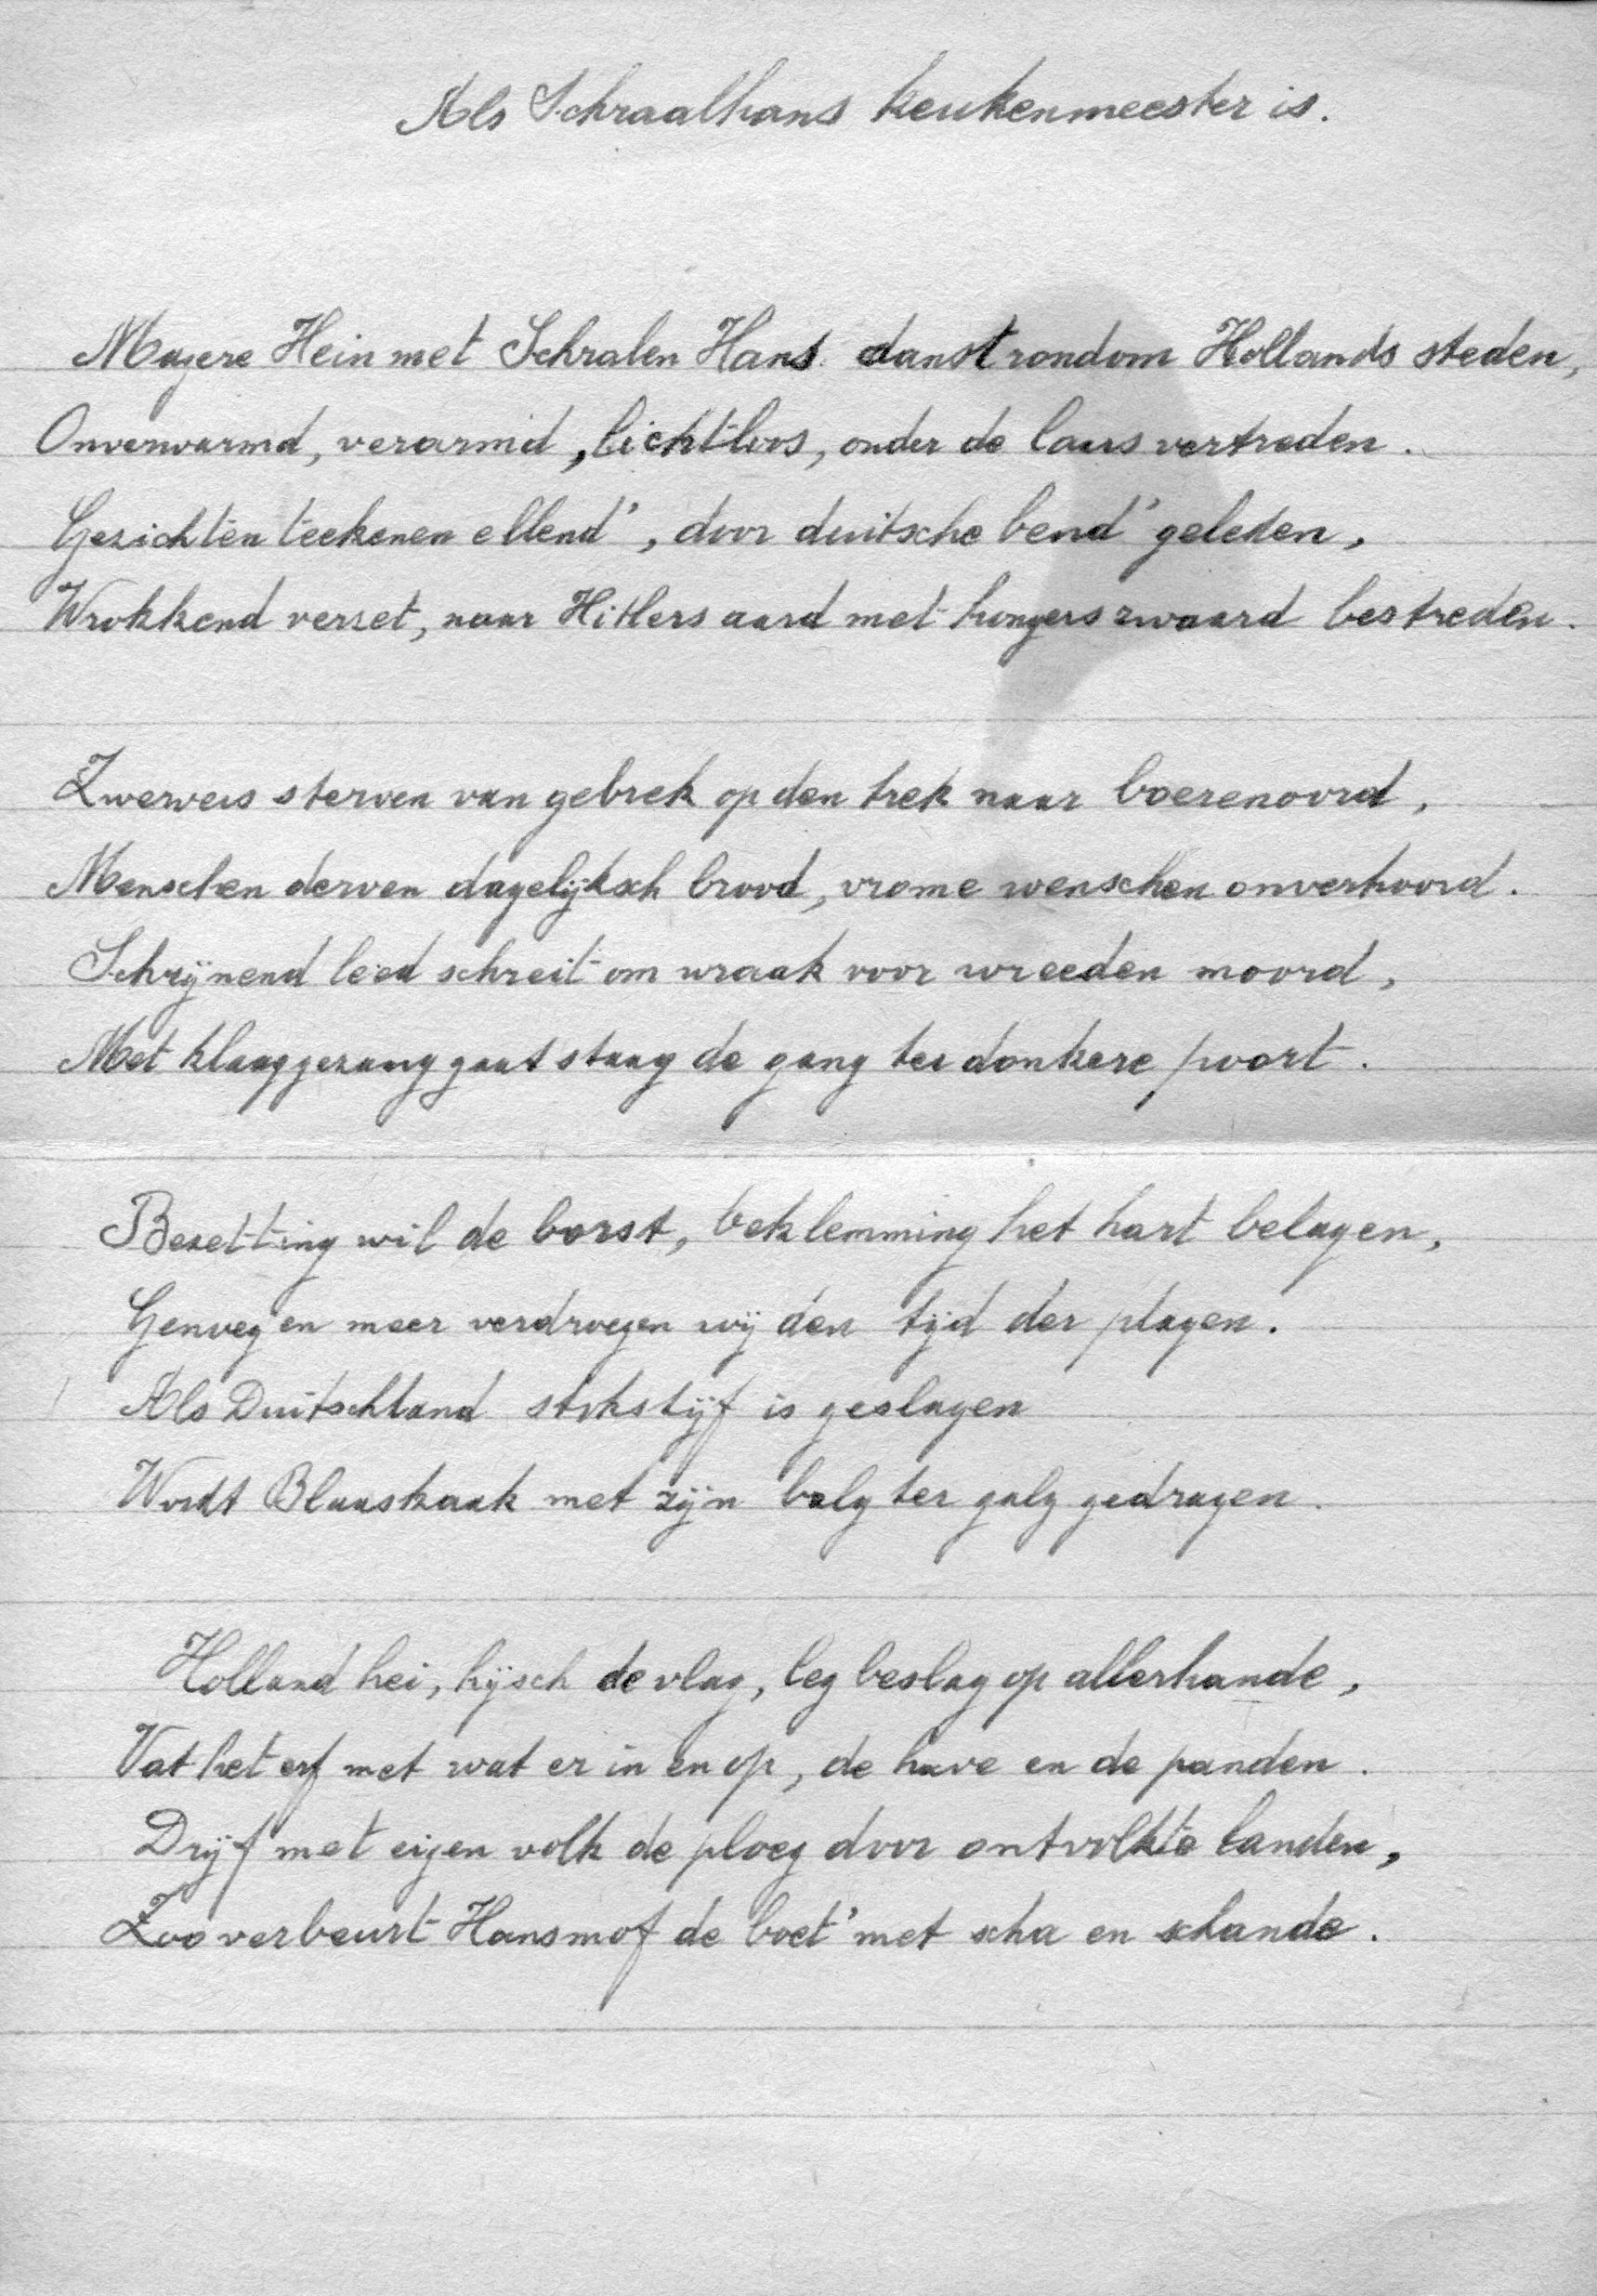 Als Schraalhans keukenmeester is.
Magere Hein met Schralen Hans danst rondom Hollands steden,
Onverwarmd, verarmd, lichtloos, onder de laars vertreden.
Gezichten teekenen ellend', door duitsche bend' geleden,
Wrokkend verzet, naar Hitlers aard met hongerszwaard bestreden.
Zwervers sterven van gebrek op den trek naar boerenoord,
Menschen derven dagelijksch brood, vrome wenschen onverhoord.
Schrijnend leed schreit om wraak voor wreeden moord,
Met klaaggezang gaat staag de gang ter donkere poort.
Bezetting wil de borst, beklemming het hart belagen,
Genoeg en meer verdroegen wij den tijd der plagen.
Als Duitschland stokstijf is geslagen
Wordt Blaaskaak met zijn balg ter galg gedragen.
Holland hei, hijsch de vlag, leg beslag op allerhande,
Vat het erf met wat er in en op, de have en de panden.
Drijf met eigen volk de ploeg door ontvolkte landen,
Zoo verbeurt Hansmof de boet' met scha en schande.